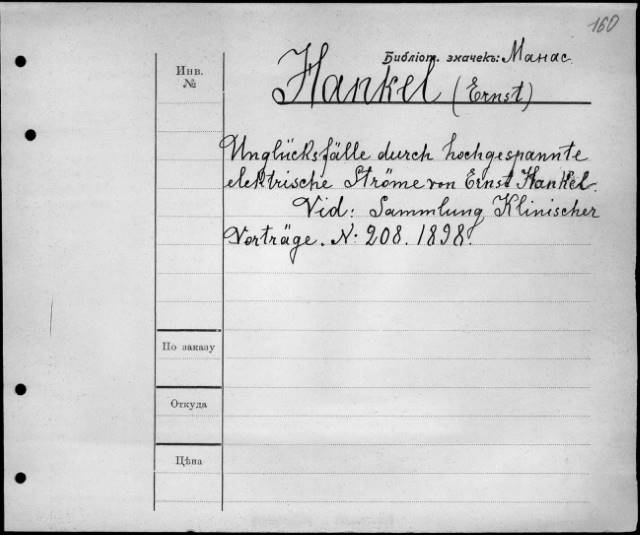 160
Библіот. значекъ: Манас.
Инв.
№
Hankel (Ernst)
Unglücksfälle durch hochgespannte
elektrische Ströme von Ernst Hankel.
Vid: Sammlung Klinischer
Vorträge. N: 208. 1898.
По заказу
Откуда
Цѣна